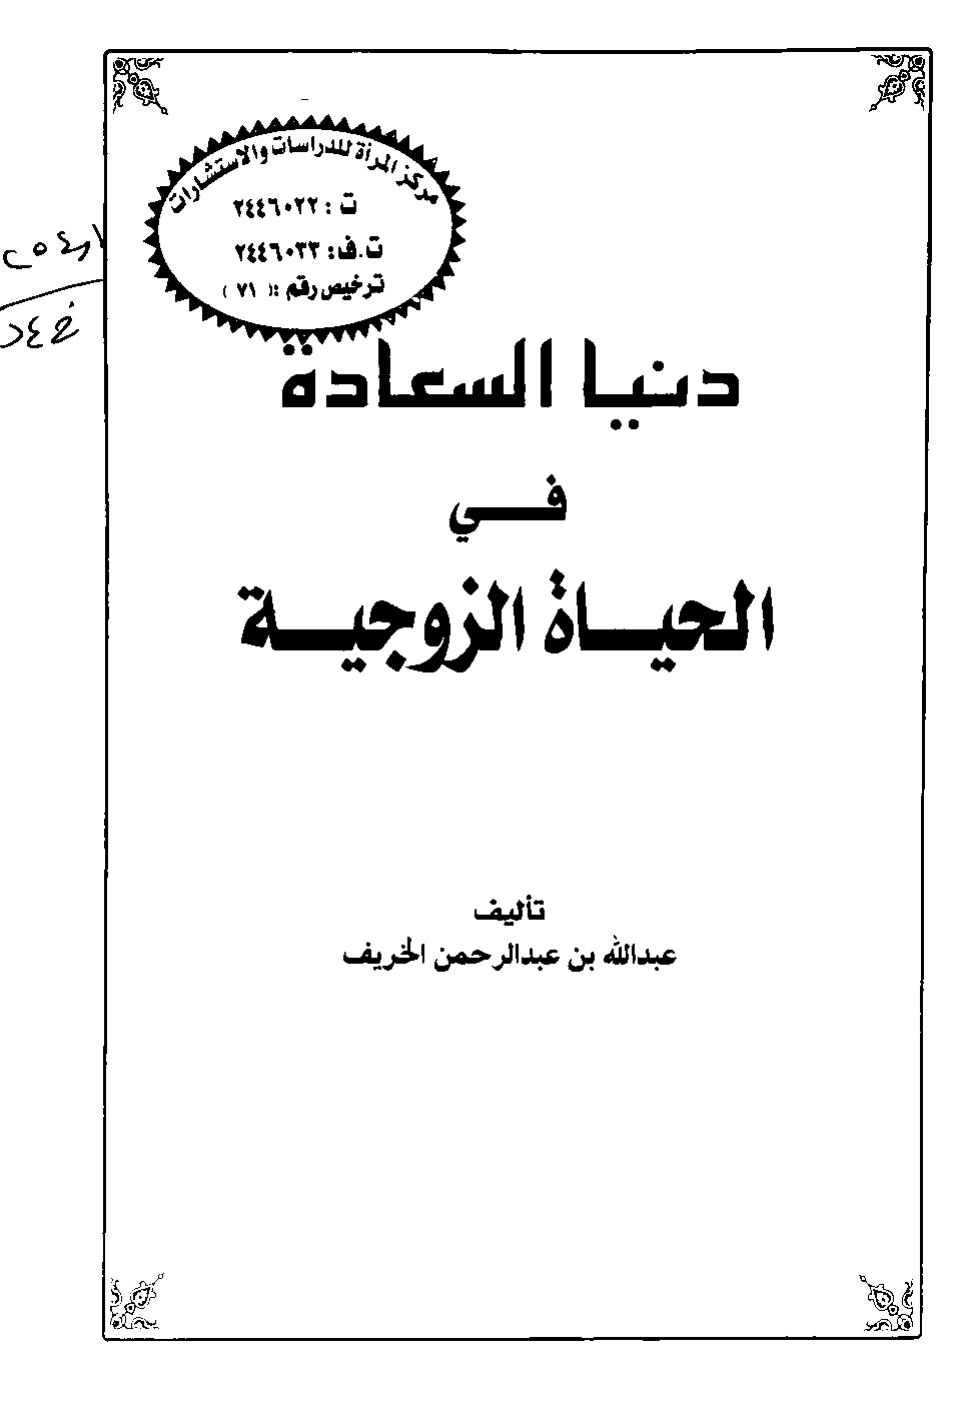 مركز المرأة للدراسات والاستشارات
ت : ٢٤٤٦٠٢٢
ت.ف: ٢٤٤٦٠٣٣
ترخيص رقم :( ٧١ )
دنيا السعادة
في
الحياة الزوجية
تأليف
عبدالله بن عبدالرحمن الخريف